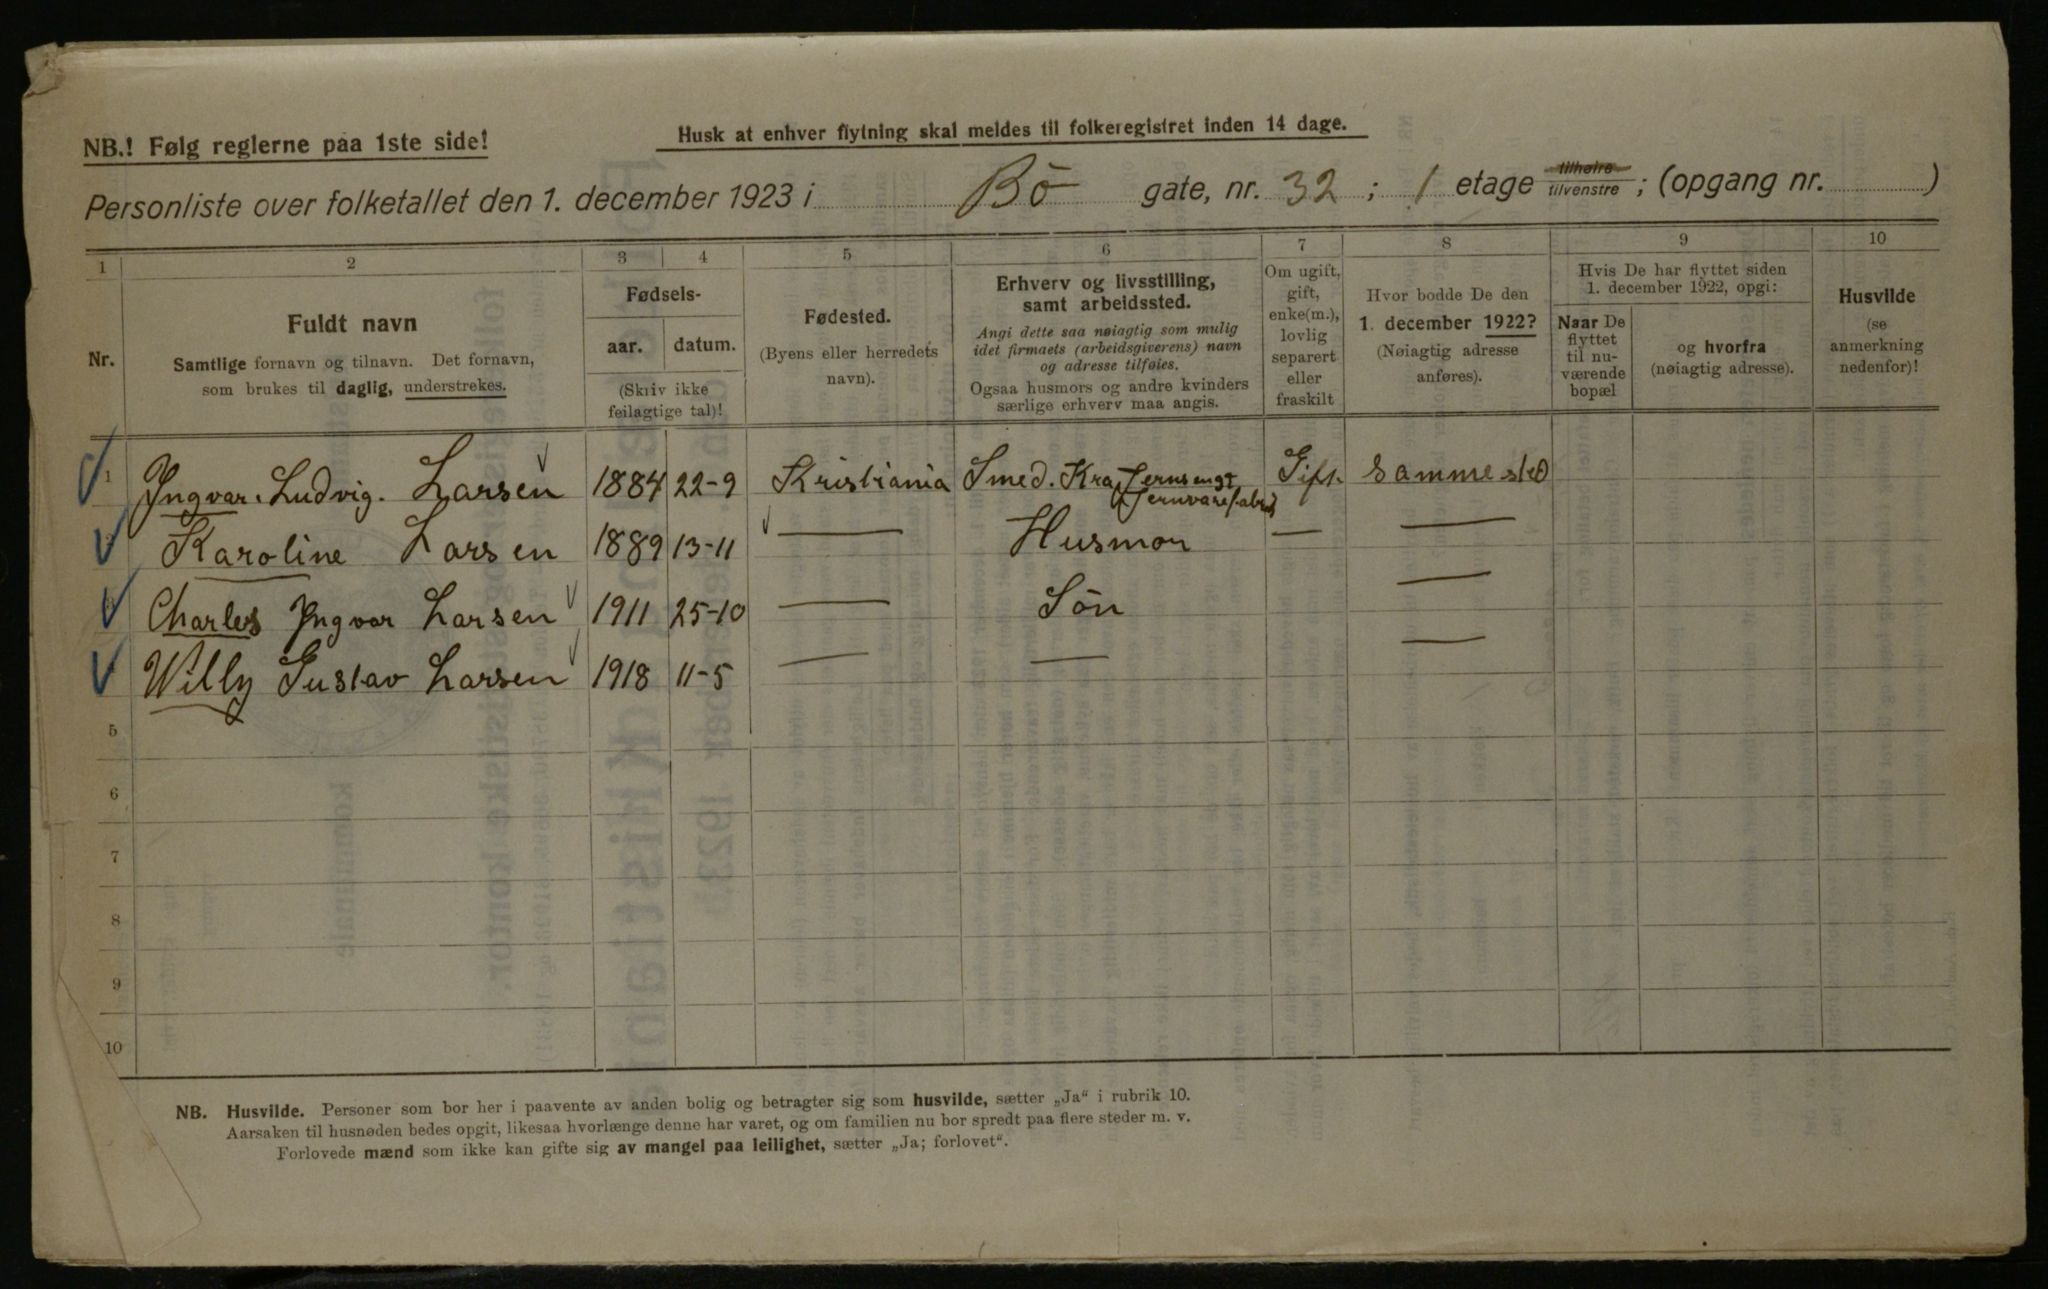 NB.! Følg reglerne paa 1ste side!
Husk at enhver flytning skal meldes til folkeregistret inden 14 dage.
Personliste over folketallet den 1. december 1923 i Bö gate, nr. 32 ; 1 etage tilhøire tilvenstre ; (opgang nr. )
1 2 3 4 5 6 7 8 9 10
Nr.
Fuldt navn
Samtlige fornavn og tilnavn. Det fornavn,
som brukes til daglig, understrekes.
Fødsels-
aar. datum.
(Skriv ikke
feilagtige tal)!
Fødested.
(Byens eller herredets
navn).
Erhverv og livsstilling,
samt arbeidssted.
Angi dette saa nøiagtig som mulig
idet firmaets (arbeidsgiverens) navn
og adresse tilføies.
Ogsaa husmors og andre kvinders
særlige erhverv maa angis.
Om ugift,
gift,
enke(m.),
lovlig
separert
eller
fraskilt
Hvor bodde De den
1. december 1922?
(Nøiagtig adresse
anføres).
Hvis De har flyttet siden
1. december 1922, opgi:
Naar De
flyttet
til nu-
værende
bopæl
og hvorfra
(nøiagtig adresse).
Husvilde
(se
anmerkning
nedenfor)!
1 Yngvar. Ludvig. Larsen 1884 22-9 Kristiania Smed. Kra. Jernsengt Gift. Sammested
Jernvarefabrik
2 Karoline Larsen 1889 13-11 — Husmor — —
3 Charles Yngvar Larsen 1911 25-10 — Sön —
4 Willy Gustav Larsen 1918 11-5 — — —
5
6
7
8
9
10
NB. Husvilde. Personer som bor her i paavente av anden bolig og betragter sig som husvilde, sætter „Ja“ i rubrik 10.
Aarsaken til husnøden bedes opgit, likesaa hvorlænge denne har varet, og om familien nu bor spredt paa flere steder m. v.
Forlovede mænd som ikke kan gifte sig av mangel paa leilighet, sætter „Ja; forlovet“.